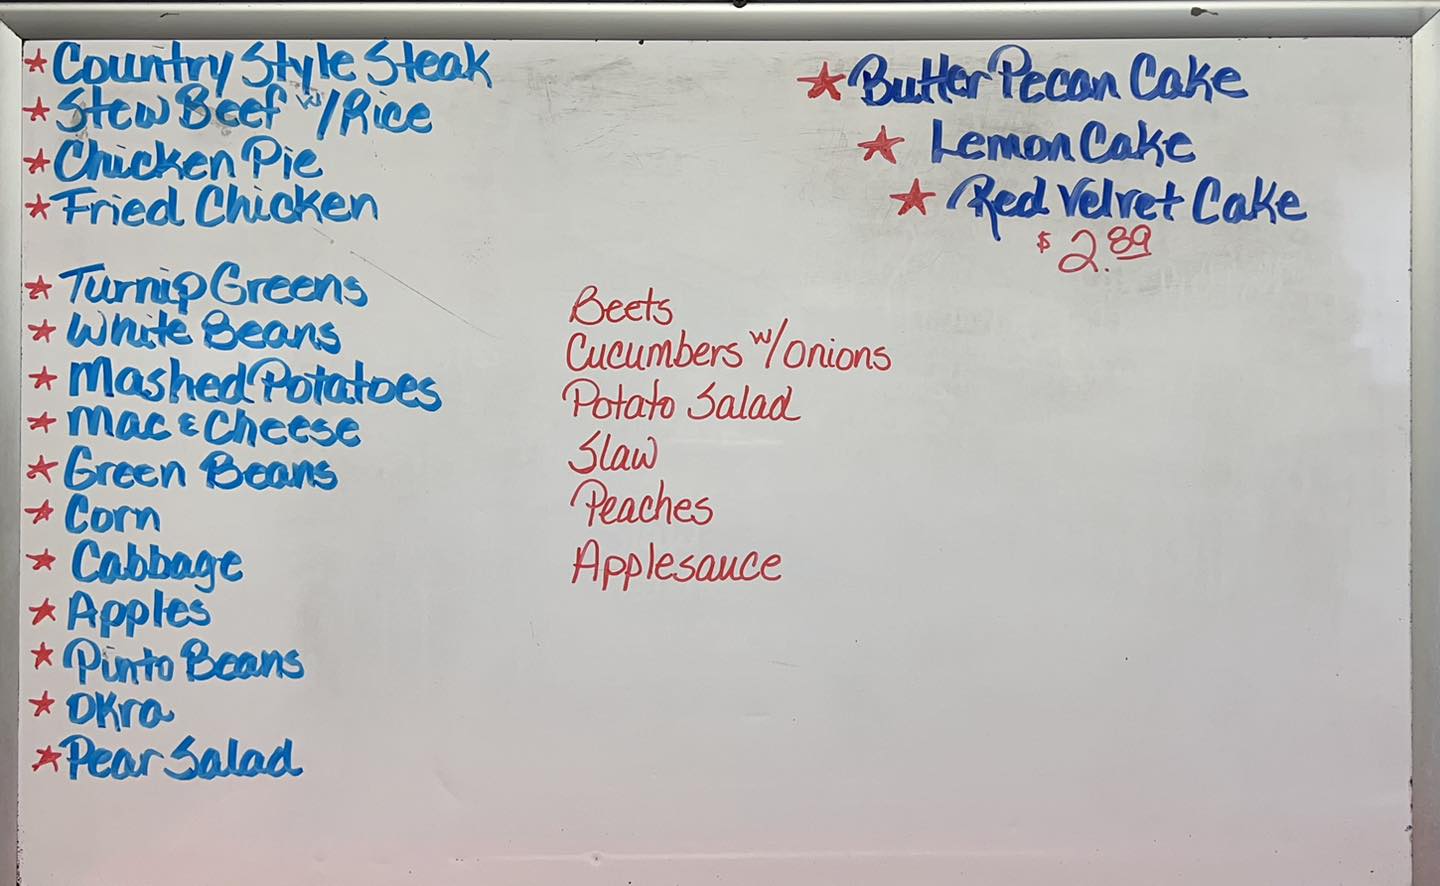 ★ Country Style Steak
★ Stew Beef w/Rice
★ Chicken Pie
★ Fried Chicken
★ Turnip Greens
★ White Beans
★ Mashed Potatoes
★ Mac & Cheese
★ Green Beans
★ Corn
★ Cabbage
★ Apples
★ Pinto Beans
★ Okra
★ Pear Salad
Beets
Cucumbers w/Onions
Potato Salad
Slaw
Peaches
Applesauce
★ Butter Pecan Cake
★ Lemon Cake
★ Red Velvet Cake
$2.89